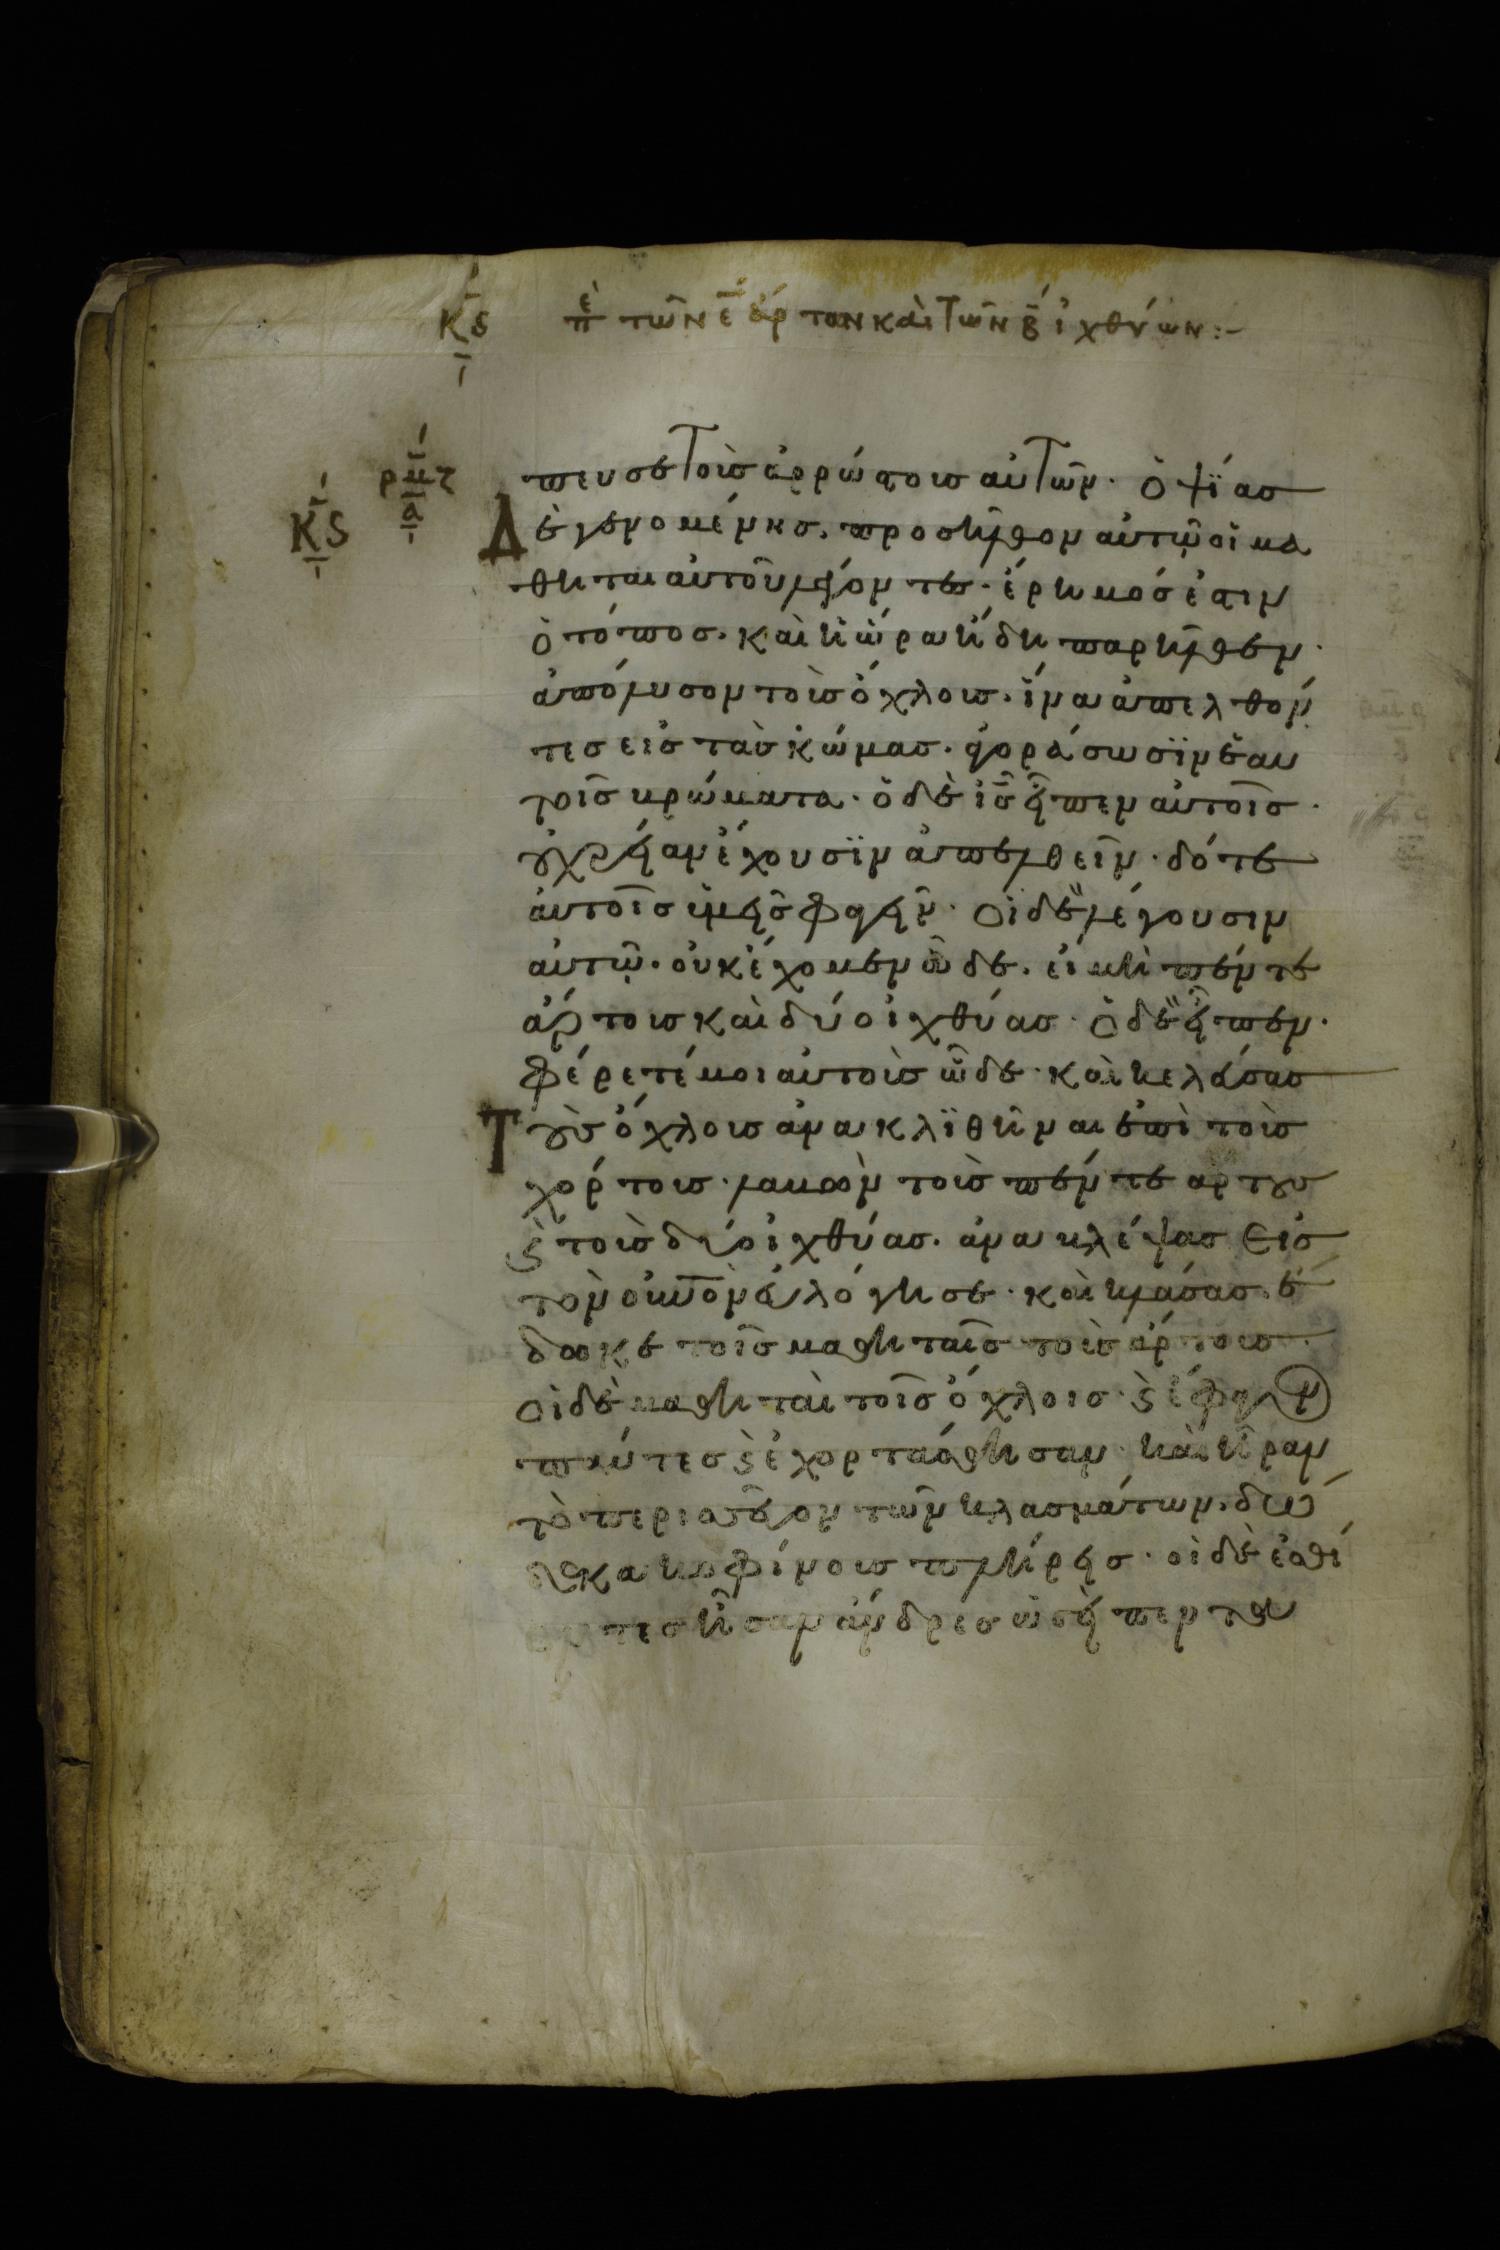 κς πε τῶν ε ἄρτον καὶ τῶν β ἰχθύων:-
ρμζ
α
κς
πευσε τοὺσ ἀρρώστουσ αὐτῶν· ὀψΐασ
δὲ γενομένησ. προσῆλθον αὐτῷ οἱ μα
θηται αὐτοῦ λέγοντεσ· ἔρημόσ ἐστιν
ὁ τόποσ. καὶ ἡ ὥρα ἤδη παρῆλθεν·
ἀπόλυσον τοὺσ ὄχλουσ. ἵνα ἀπελθόν
τεσ εἰσ τὰσ κώμασ. ἀγοράσωσϊν ἑαυ
τοῖσ βρώματα· ὁ δὲ ισ εἶπεν αὐτοῖσ·
οὐ χρείαν ἔχουσϊν ἀπελθεῖν· δότε
αὐτοῖσ ὑμεῖσ φαγεῖν· οἱ δὲ λέγουσιν
αὐτῷ· οὐκ ἔχομεν ὧδε. εἰ μὴ πέντε
ἄρτουσ καὶ δύο ἰχθύασ· ὁ δὲ εἶπεν·
φέρετέ μοι αὐτοὺσ ὧδε· καὶ κελεύσασ
τοὺσ ὄχλουσ ἀνακλϊθῆναι ἐπὶ τοὺσ
χόρτουσ· λαβὼν τοὺσ πέντε αρτουσ
ϗ τοὺσ δύο ἰχθύασ. ἀναβλέψασ εἰσ
τὸν οὐνὸν εὐλόγησε· καὶ κλάσασ. ἔ
δωκε τοῖσ μαθηταῖσ τοὺσ ἄρτουσ·
οἱ δὲ μαθηταὶ τοῖσ ὄχλοισ· ϗ ἔφαγον
πάντεσ ϗ ἐχορτάσθησαν· καὶ ἦραν
τὸ περισσεῦον τῶν κλασμάτων. δώ
δεκα κοφίνουσ πλήρεισ· οἱ δὲ ἐσθί
οντεσ ἦσαν ἄνδρεσ ὡσεὶ πεντα